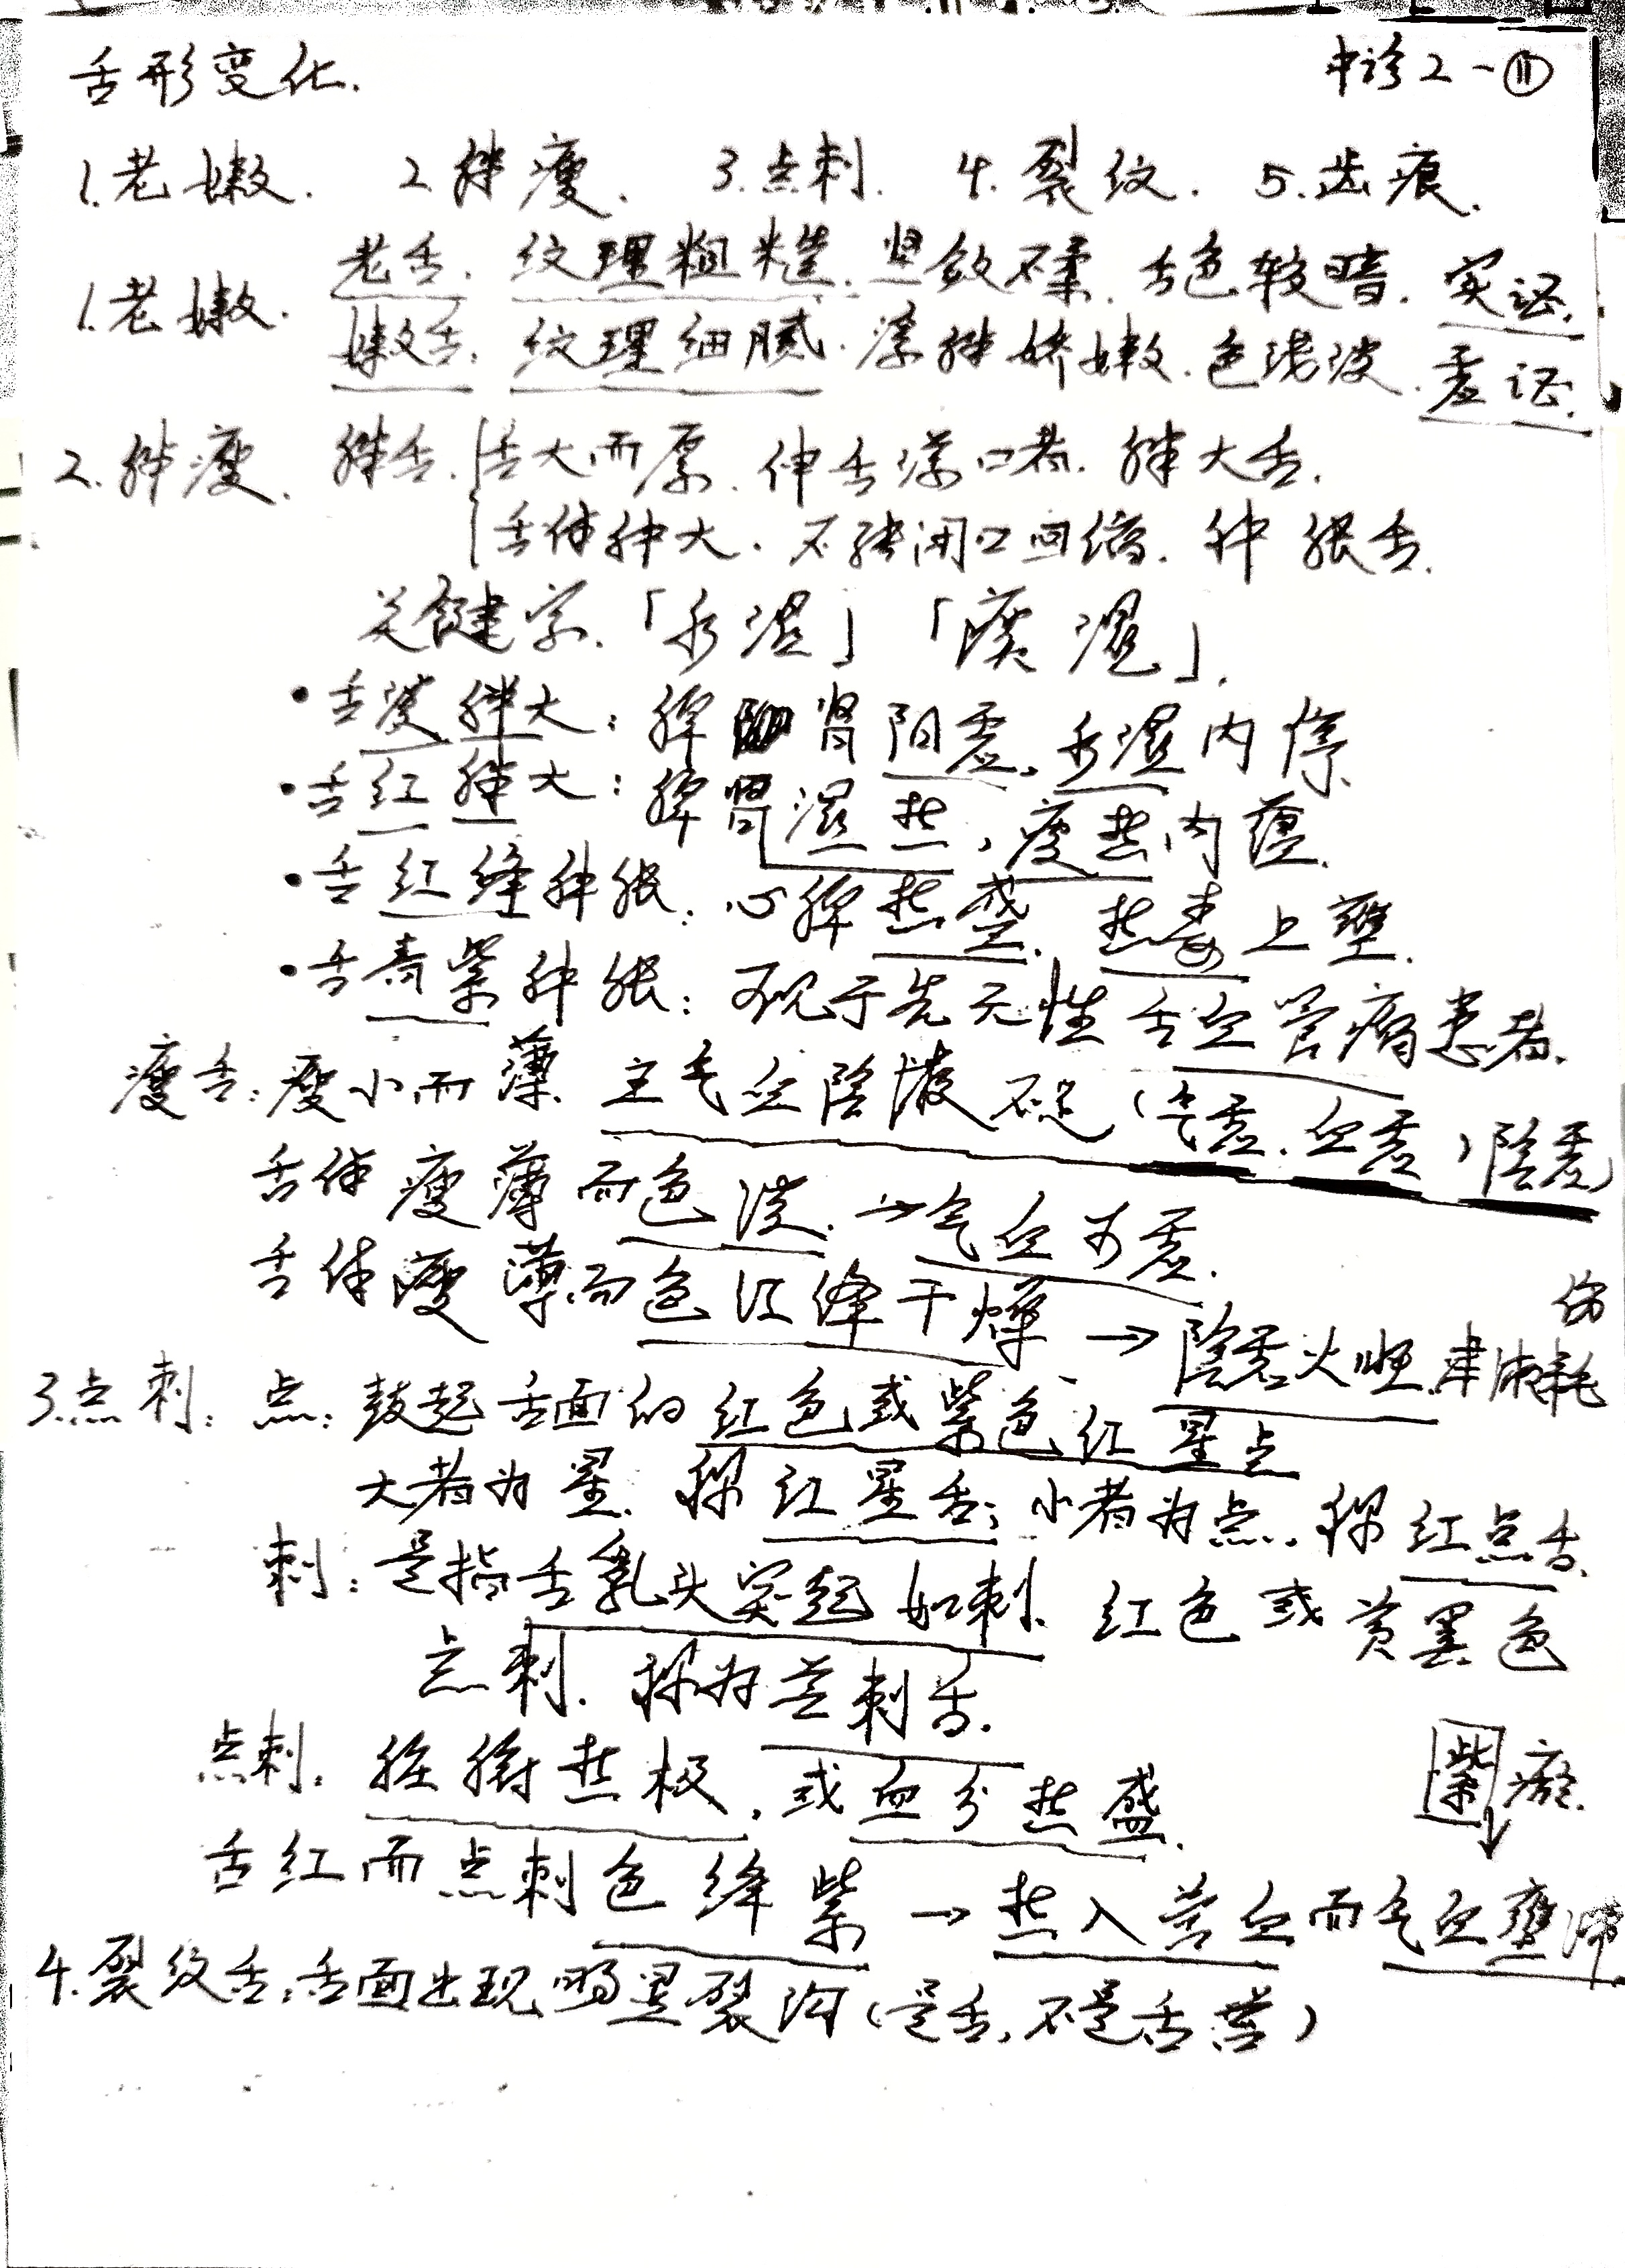 舌形变化.
中诊2-⑪
1.老嫩. 2.胖瘦. 3.点刺. 4.裂纹. 5.齿痕.
1.老嫩. 老舌. 纹理粗糙. 坚敛不柔. 舌色较暗. 实证.
嫩舌. 纹理细腻. 浮胖娇嫩. 色浅淡. 虚证.
2.胖瘦. 胖舌. 舌大而厚. 伸舌满口者. 胖大舌.
舌体肿大. 不能闭口回缩. 肿胀舌.
关键字.「水湿」「痰湿」.
•舌淡胖大: 脾肾阳虚, 水湿内停.
•舌红胖大: 脾胃湿热, 痰热内蕴.
•舌红绛肿胀: 心脾热盛. 热毒上壅.
•舌青紫肿胀: 可见于先天性舌血管瘤患者.
瘦舌: 瘦小而薄. 主气血陰液不足 (气虚. 血虚, 陰虚)
舌体瘦薄而色淡. →气血两虚.
舌体瘦薄而色红绛干燥 → 陰虚火旺. 津液耗
伤
3.点刺: 点: 鼓起舌面的红色或紫色红星点
大者为星. 称红星舌; 小者为点. 称红点舌.
刺: 是指舌乳头突起如刺. 红色或黄黑色
点刺. 称为芒刺舌.
点刺. 脏腑热极, 或血分热盛.
紫 瘀.
舌红而点刺色绛紫 → 热入营血而气血壅滞
4.裂纹舌: 舌面出现明显裂沟 (是舌, 不是舌苔)